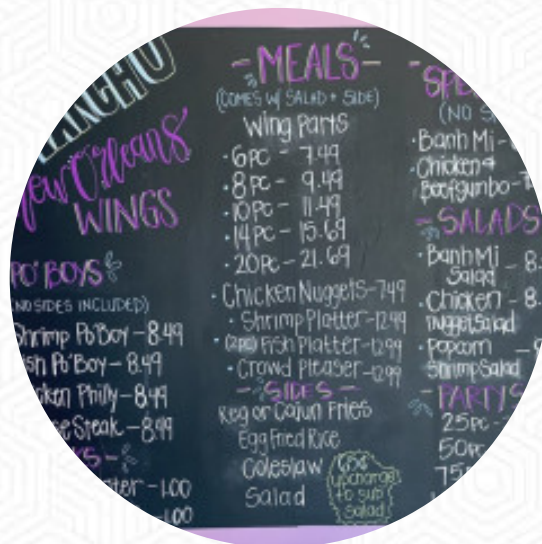 New Orleans
WINGS
PO' BOYS
(NO SIDES INCLUDED)
Shrimp Po'Boy - 8.49
Po'Boy - 8.49
Philly - 8.49
Steak - 8.99
- 1.00
- 1.00
- MEALS -
(COMES W/ SALAD + SIDE)
Wing Parts
· 6pc - 7.49
· 8pc - 9.49
· 10pc - 11.49
· 14pc - 15.69
· 20pc - 21.69
· Chicken Nuggets - 7.49
· Shrimp Platter - 12.99
· (2pc) Fish Platter - 12.99
· Crowd Pleaser - 12.99
- SIDES -
Reg or Cajun Fries
Egg Fried Rice
Coleslaw
Salad
upcharge
to sub
salad
(NO
· Banh Mi -
· Chicken &
Beef gumbo -
- SALADS
· Banh Mi
Salad - 8.
· Chicken - 8.
nugget Salad
· Popcorn
Shrimp Salad
- PARTY
25pc -
50pc